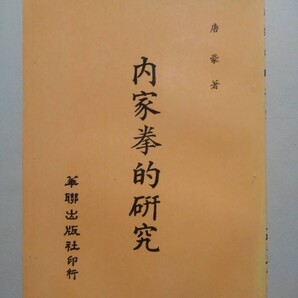 唐豪著
內家拳的研究
華聯出版社印行